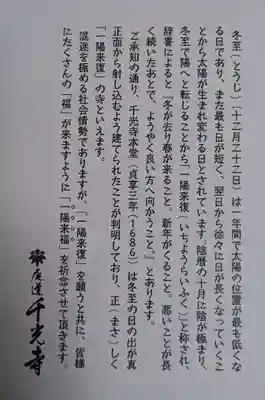 冬至（とうじ）（十二月二十二日）は一年間で太陽の位置が最も低くな
る日であり、また最も日が短く、翌日から徐々に日が長くなっていくこ
とから太陽が生まれ変わる日とされています。陰暦の十月に陰が極まり、
冬至で陽へと転じることから「一陽来復（いちようらいふく）」と称され、
辞書によると『冬が去り春が来ること。新年がくること。悪いことが長
く続いたあとで、ようやく良い方へ向かうこと。』とあります。
ご承知の通り、千光寺本堂（貞享三年（1686））は冬至の日の出が真
正面から射し込むよう建てられたことが判明しており、正（まさ）しく
「一陽来復」の寺といえます。
混迷を極める社会情勢でありますが、「一陽来復」を願うと共に、皆様
にたくさんの「福」が来ますように「一陽来福」を祈念させて頂きます。
尾道 千光寺